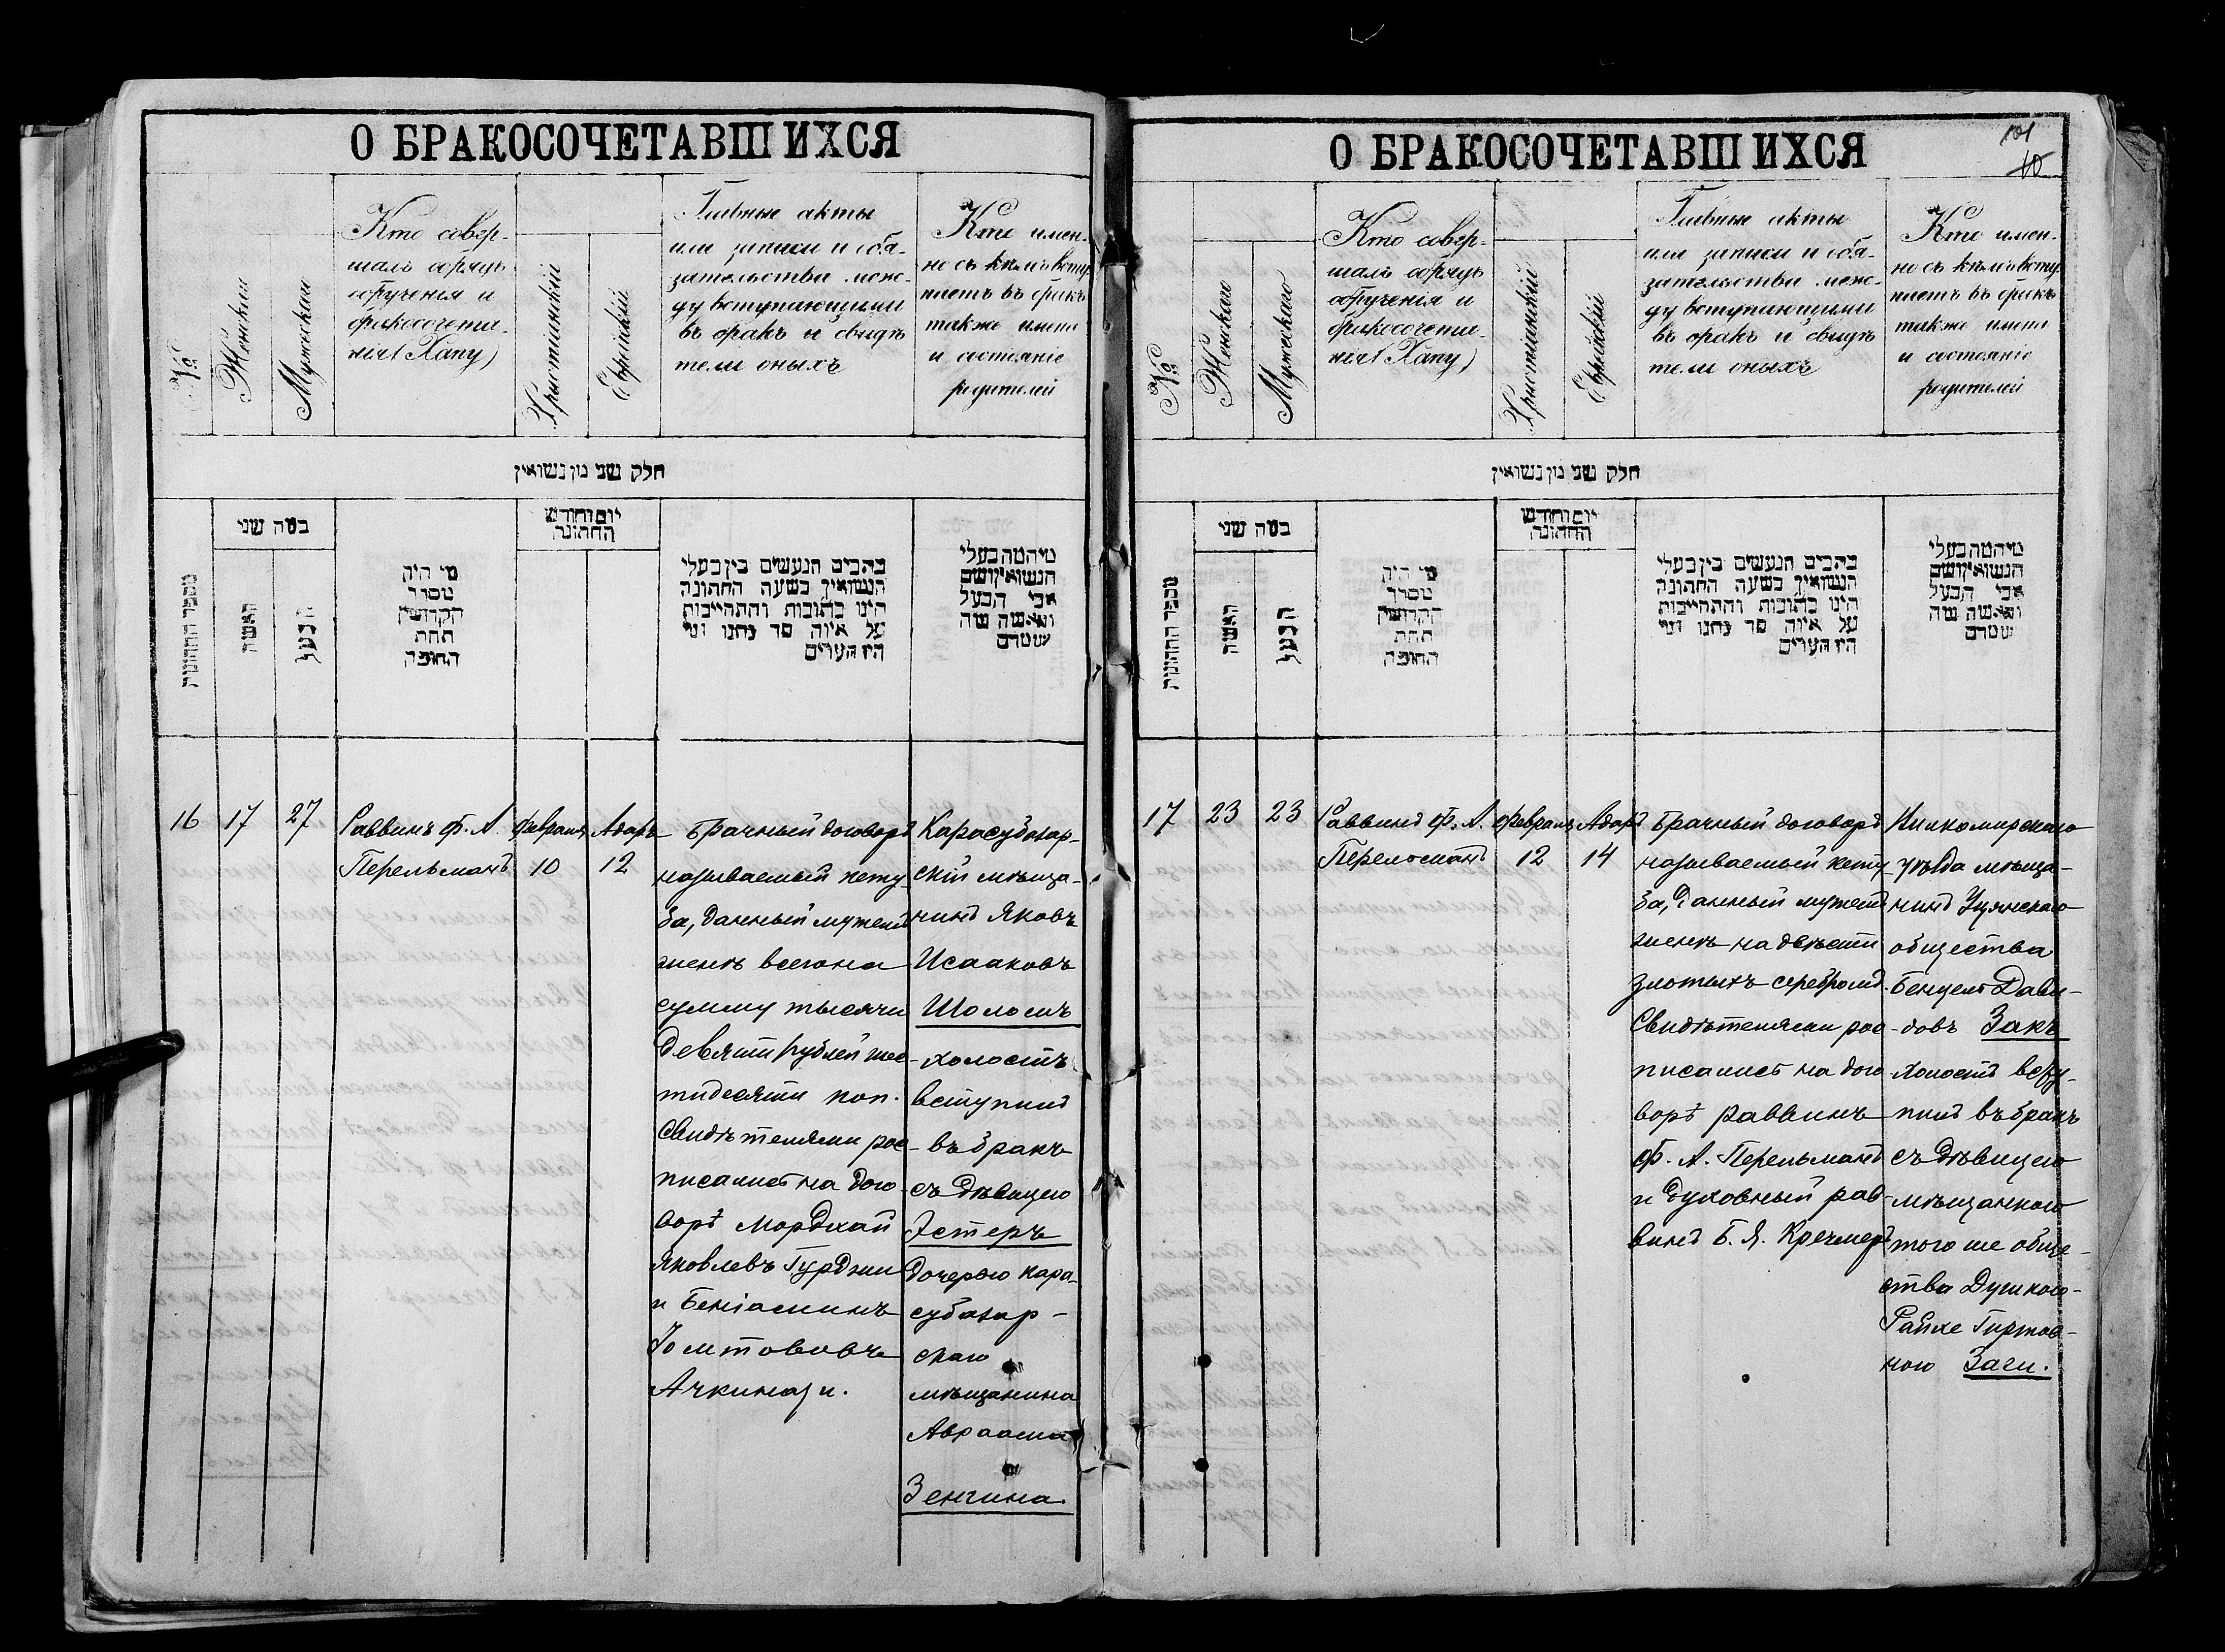 О БРАКОСОЧЕТАВШИХСЯ
№
Женская
Мужская
Кто совер-
шалъ обрядъ
обрученія и
бракосочета-
нія (Хапу)
Христіанскій
Еврейскій
Главные акты
или записи и обя-
зательства меж-
ду вступающими
въ бракъ и свидѣ
тели оныхъ
Кто имен-
но съ кѣмъ всту
паетъ въ бракъ
также имена
и состояніе
родителей
חלק שני מן נשואין
מספר החתונות
כמה שני
האשה
הבעל
מי היה
מסדר
הקדושין
תחת
החופה
יום וחודש
החתונה
כתבים הנעשים בין בעלי
הנשואין בשעה החתונה
היינו כתובות והתחייבות
על איזה סך נתנו ומי
היו העדים
מיהמה בעלי
הנשואין ושם
אבי הבעל
והאשה מה
שמדם
16
17
27
Раввинъ Ф. А.
Перельманъ
Февраля
10
Адаръ
12
Брачный договоръ
называемый кету
ба, данный мужемъ
женѣ всего на
сумму тысячи
девяти рублей шес-
тидесяти коп.
Свидѣтелями рос
писались на дого
ворѣ Мордхай
Яковлевъ Гурджи
и Беніаминъ
Іомтововъ
Ачкинази.
Карасубазар-
скій мѣща-
нинъ Яковъ
Исааковъ
Шоломъ
холостъ
вступилъ
въ бракъ
съ дѣвицею
Эстеръ
дочерью кара-
субазар-
скаго
мѣщанина
Авраама
Зенгина.
О БРАКОСОЧЕТАВШИХСЯ
101
10
№
Женскаго
Мужескаго
Кто совер-
шалъ обрядъ
обрученія и
бракосочета-
нія (Хапу)
Христіанскій
Еврейскій
Главные акты
или записи и обя-
зательства меж-
ду вступающими
въ бракъ и свидѣ
тели оныхъ
Кто имен-
но съ кѣмъ всту
паетъ въ бракъ
также имена
и состояніе
родителей
חלק שני מן נשואין
מספר החתונות
כמה שני
האשה
הבעל
מי היה
מסדר
הקדושין
תחת
החופה
יום וחודש
החתונה
כתבים הנעשים בין בעלי
הנשואין בשעה החתונה
היינו כתובות והתחייבות
על איזה סך נתנו ומי
היו העדים
מיהמה בעלי
הנשואין ושם
אבי הבעל
והאשה מה
שמדם
17
23
23
Раввинъ Ф. А.
Перельманъ
Февраля
12
Адаръ
14
Брачный договоръ
называемый кету
ба, данный мужемъ
женѣ на двѣсти
злотыхъ серебромъ.
Свидѣтелями рос
писались на дого
ворѣ раввинъ
Ф. А. Перельманъ
и духовный рав-
винъ Б. Я. Кречмеръ
Вилкомирскаго
уѣзда мѣща-
нинъ Уцянскаго
общества
Бенцель Дави-
довъ Закъ
холостъ всту-
пилъ въ бракъ
съ дѣвицею
мѣщанкою
того же обще-
ства Душкою-
Райхе Гиршов-
ною Заги.